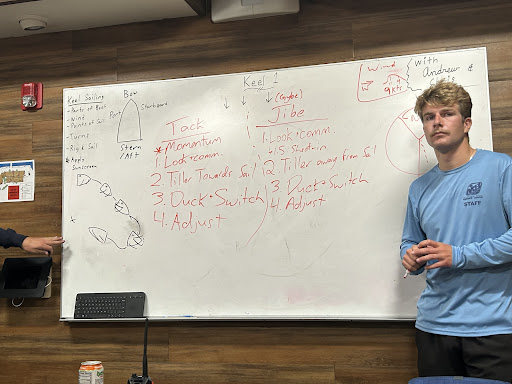 Keel Sailing
- Parts of Boat
- Wind
- Points of Sail
- Turns
- Rig & Sail
Apply Sunscreen
Bow
Port
Starboard
Stern
/Aft
Keel 1
Tack
* Momentum
1. Look + comm.
2. Tiller Towards Sail
3. Duck + Switch
4. Adjust
Jibe
1. Look + comm.
2. Tiller away from Sail
3. Duck + Switch
4. Adjust
Wind
W
9 kts
with
Andrew &
STAFF